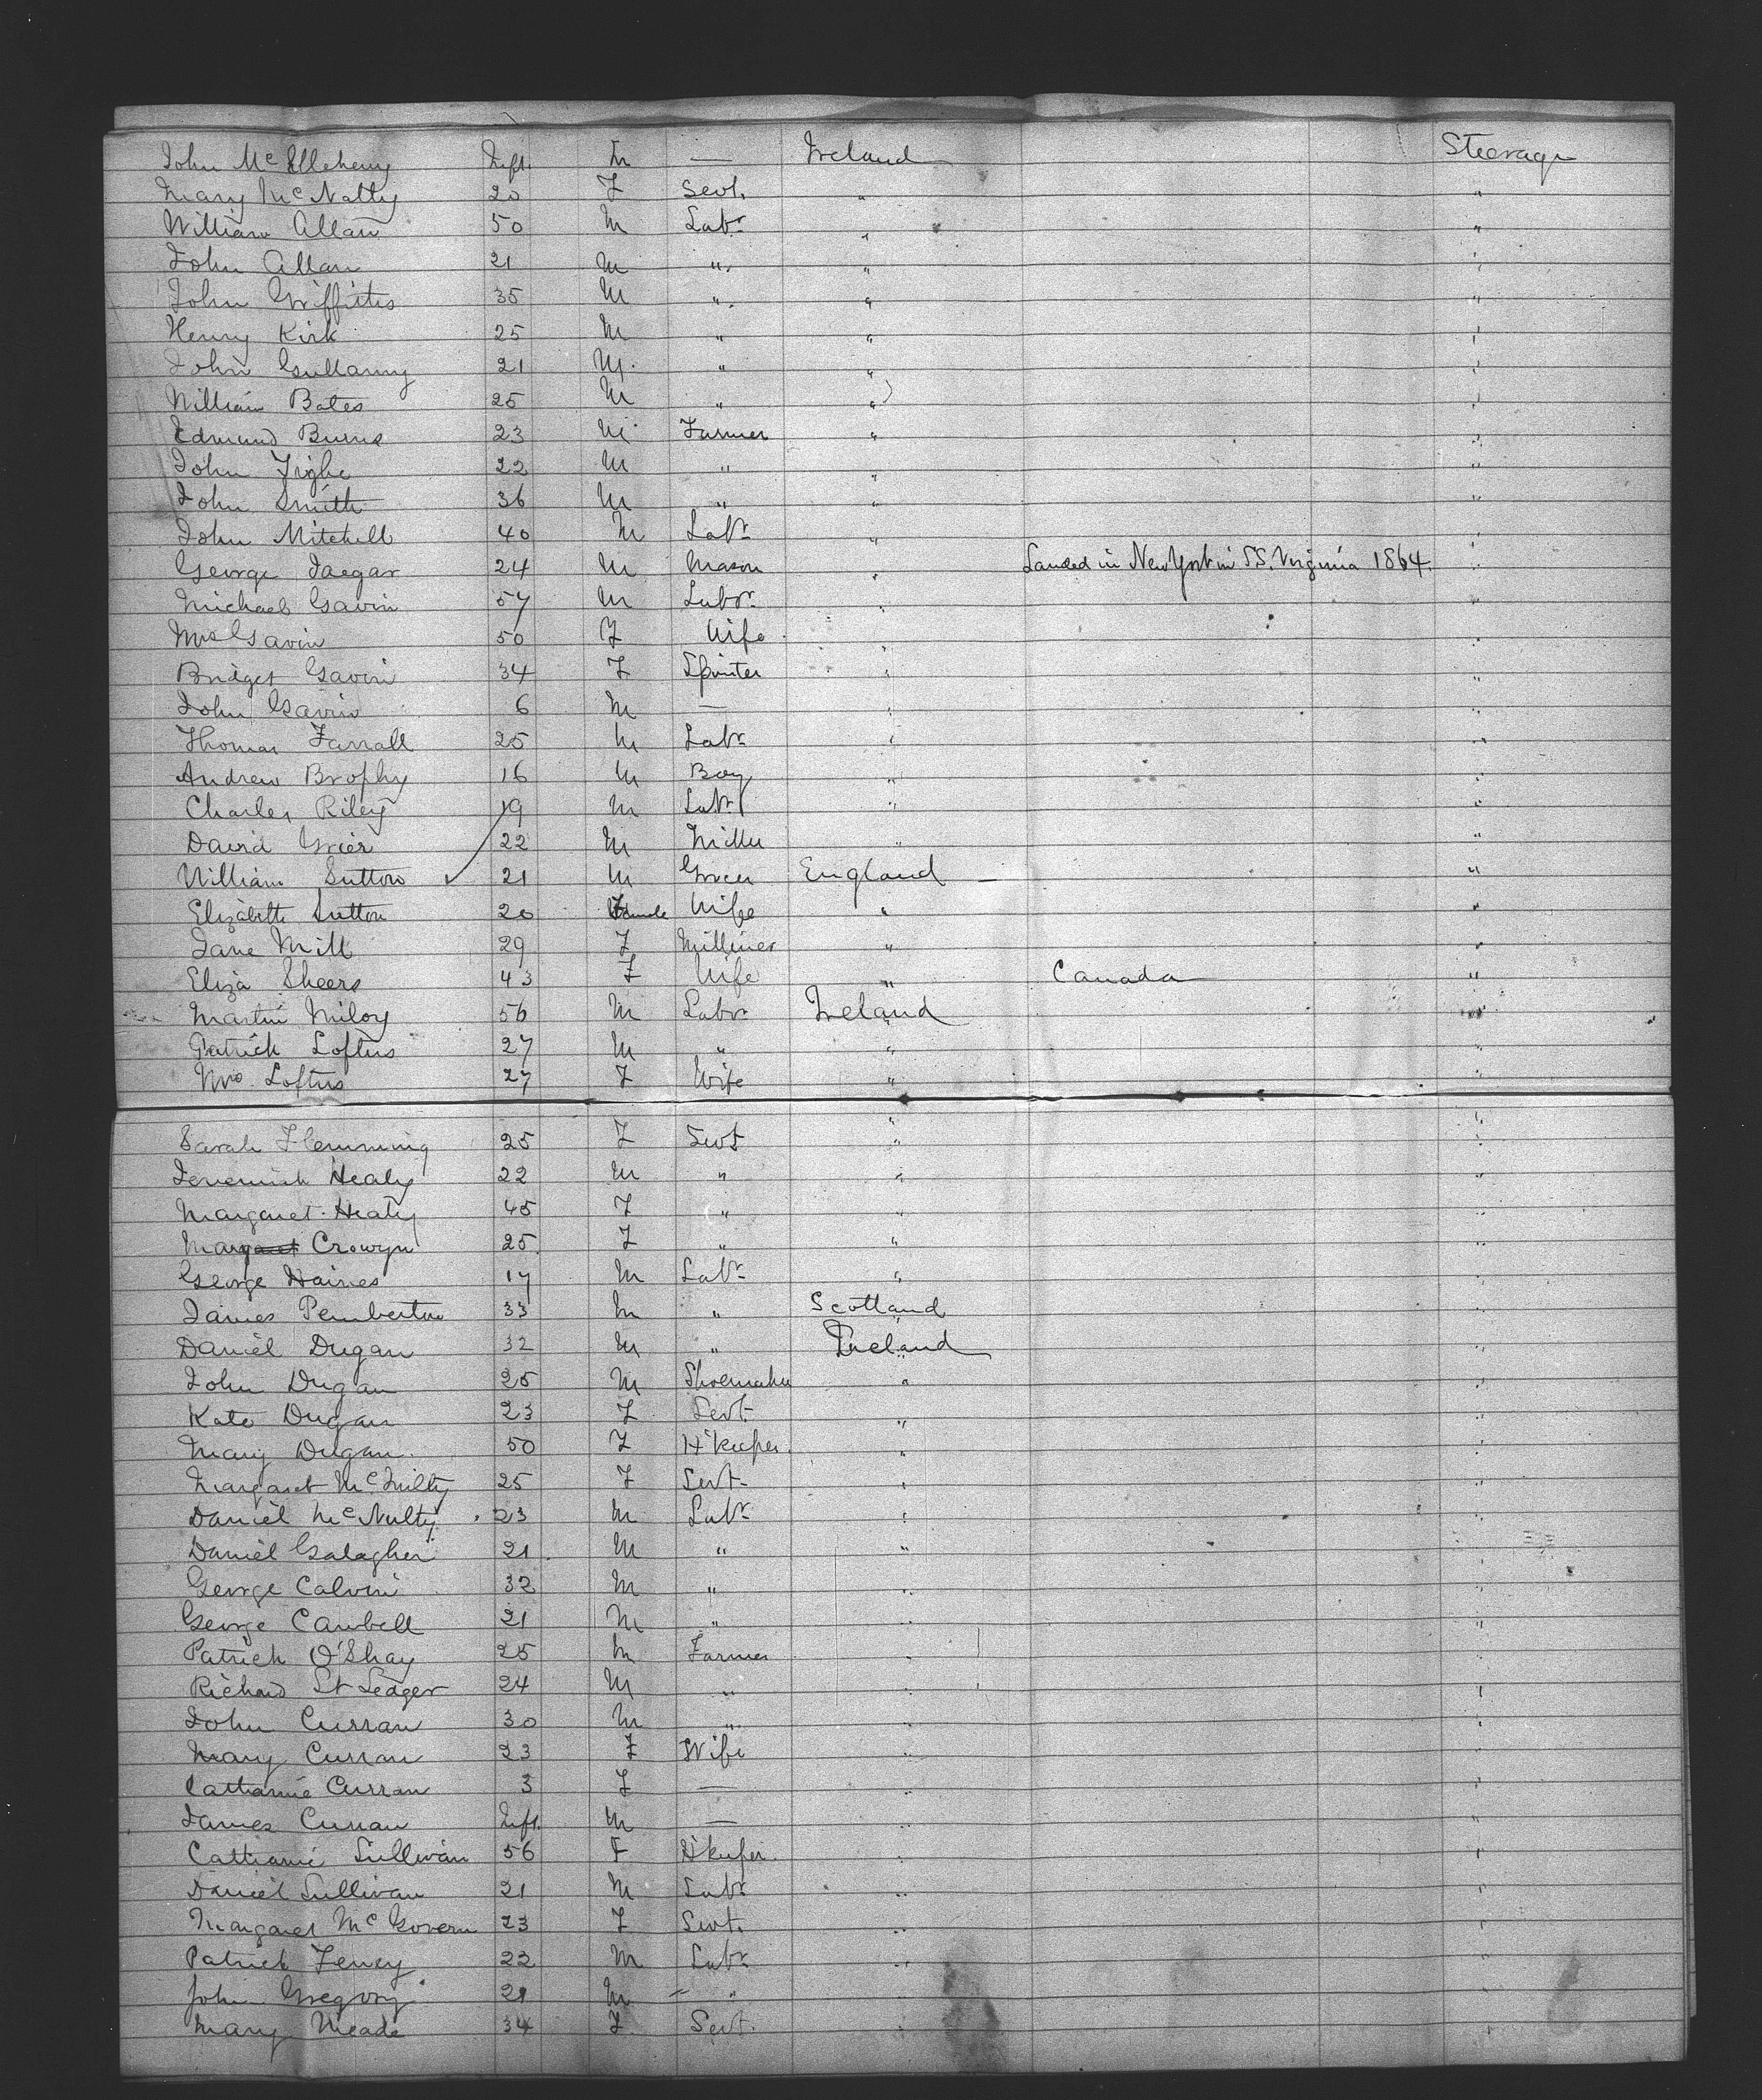 John McElleheny Inft. M — Ireland Steerage
Mary McNatty 20 F Servt. " "
William Allan 50 M Labr " "
John Allan 21 M " " "
John Griffiths 35 M " " "
Henry Kirk 25 M " " "
John Gullanny 21 M. " " "
William Bates 25 M " " "
Edmund Burns 23 M Farmer " "
John Tighe 22 M " " "
John Smith 36 M " " "
John Mitchell 40 M Labr " "
George Jaegar 24 M Mason " Landed in New York in S.S. Virginia 1864. "
Michael Gavin 57 M Labr " "
Mrs Gavin 50 F Wife " "
Bridget Gavin 34 F Spinter " "
John Gavin 6 M — " "
Thomas Farrall 25 M Labr " "
Andrew Brophy 16 M Boy " "
Charles Riley 19 M Labr " "
David Grier 22 M Miller " "
William Sutton 21 M Grocer England "
Elizabeth Sutton 20 F Wife " "
Jane Mill 29 F Milliner " "
Eliza Sheers 43 F Wife " Canada "
Martin Miloy 56 M Labr Ireland "
Patrick Loftus 27 M " " "
Mrs. Loftus 27 F Wife " "
Sarah Flemming 25 F Servt " "
Jeremiah Healy 22 M " " "
Margaret Healy 45 F " " "
Mary Crowyn 25 F " " "
George Haines 17 M Labr " "
James Pemberton 33 M " Scotland "
Daniel Dugan 32 M " Ireland "
John Dugan 25 M Shoemaker " "
Kate Dugan 23 F Servt " "
Mary Dugan 50 F H'keeper " "
Margaret McNulty 25 F Servt " "
Daniel McNulty 23 M Labr " "
Daniel Galagher 21 M " " "
George Calvin 32 M " " "
George Cambell 21 M " " "
Patrick O'Shay 25 M Farmer " "
Richard St Leager 24 M " " "
John Curran 30 M " " "
Mary Curran 23 F Wife " "
Catharine Curran 3 F — " "
James Curran Inft. M — " "
Catharine Sullivan 56 F H'keeper " "
Daniel Sullivan 21 M Labr " "
Margaret McGovern 23 F Servt. " "
Patrick Feney 22 M Labr " "
John Gregory 21 M " " "
Mary Meade 34 F Servt. " "